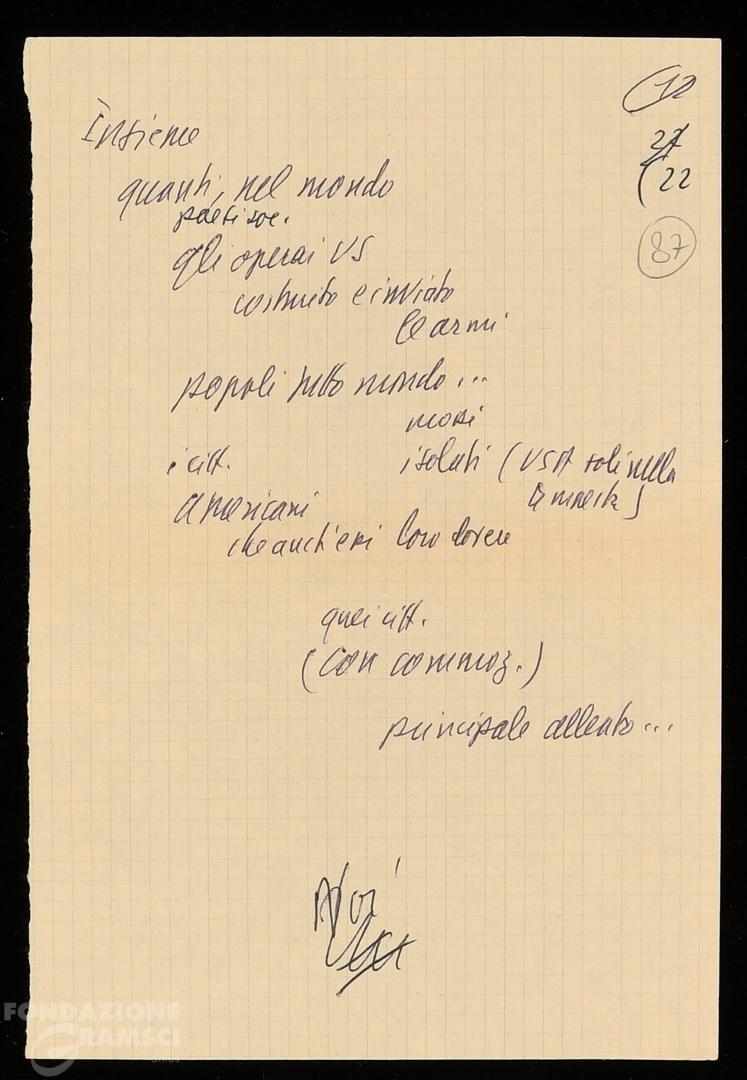 12
Insieme
27
quanti, nel mondo
(22
paesi soc.
87
gli operai US
costruito e inviato
le armi
popoli tutto mondo...
mosi
i citt.
isolati (USA soli nella
americani
che anch'essi loro dovere
quei citt.
(con commoz.)
principale alleato...
Noi
FONDAZIONE
GRAMSCI